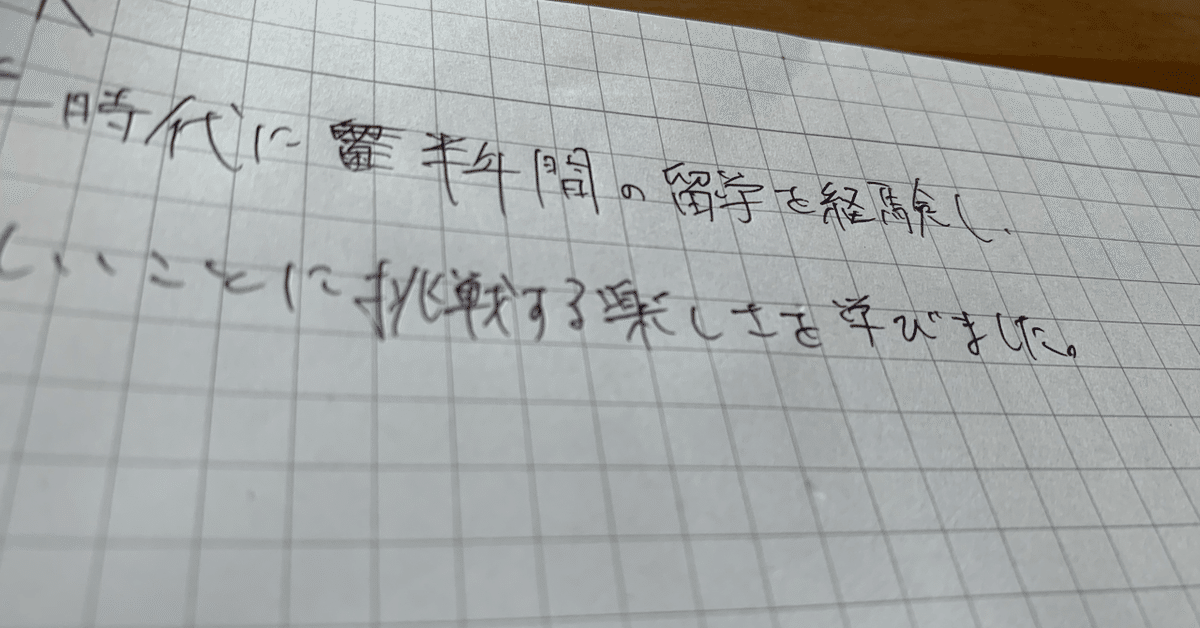 時代に半年間の留学を経験し、
しいことに挑戦する楽しさを学びました。